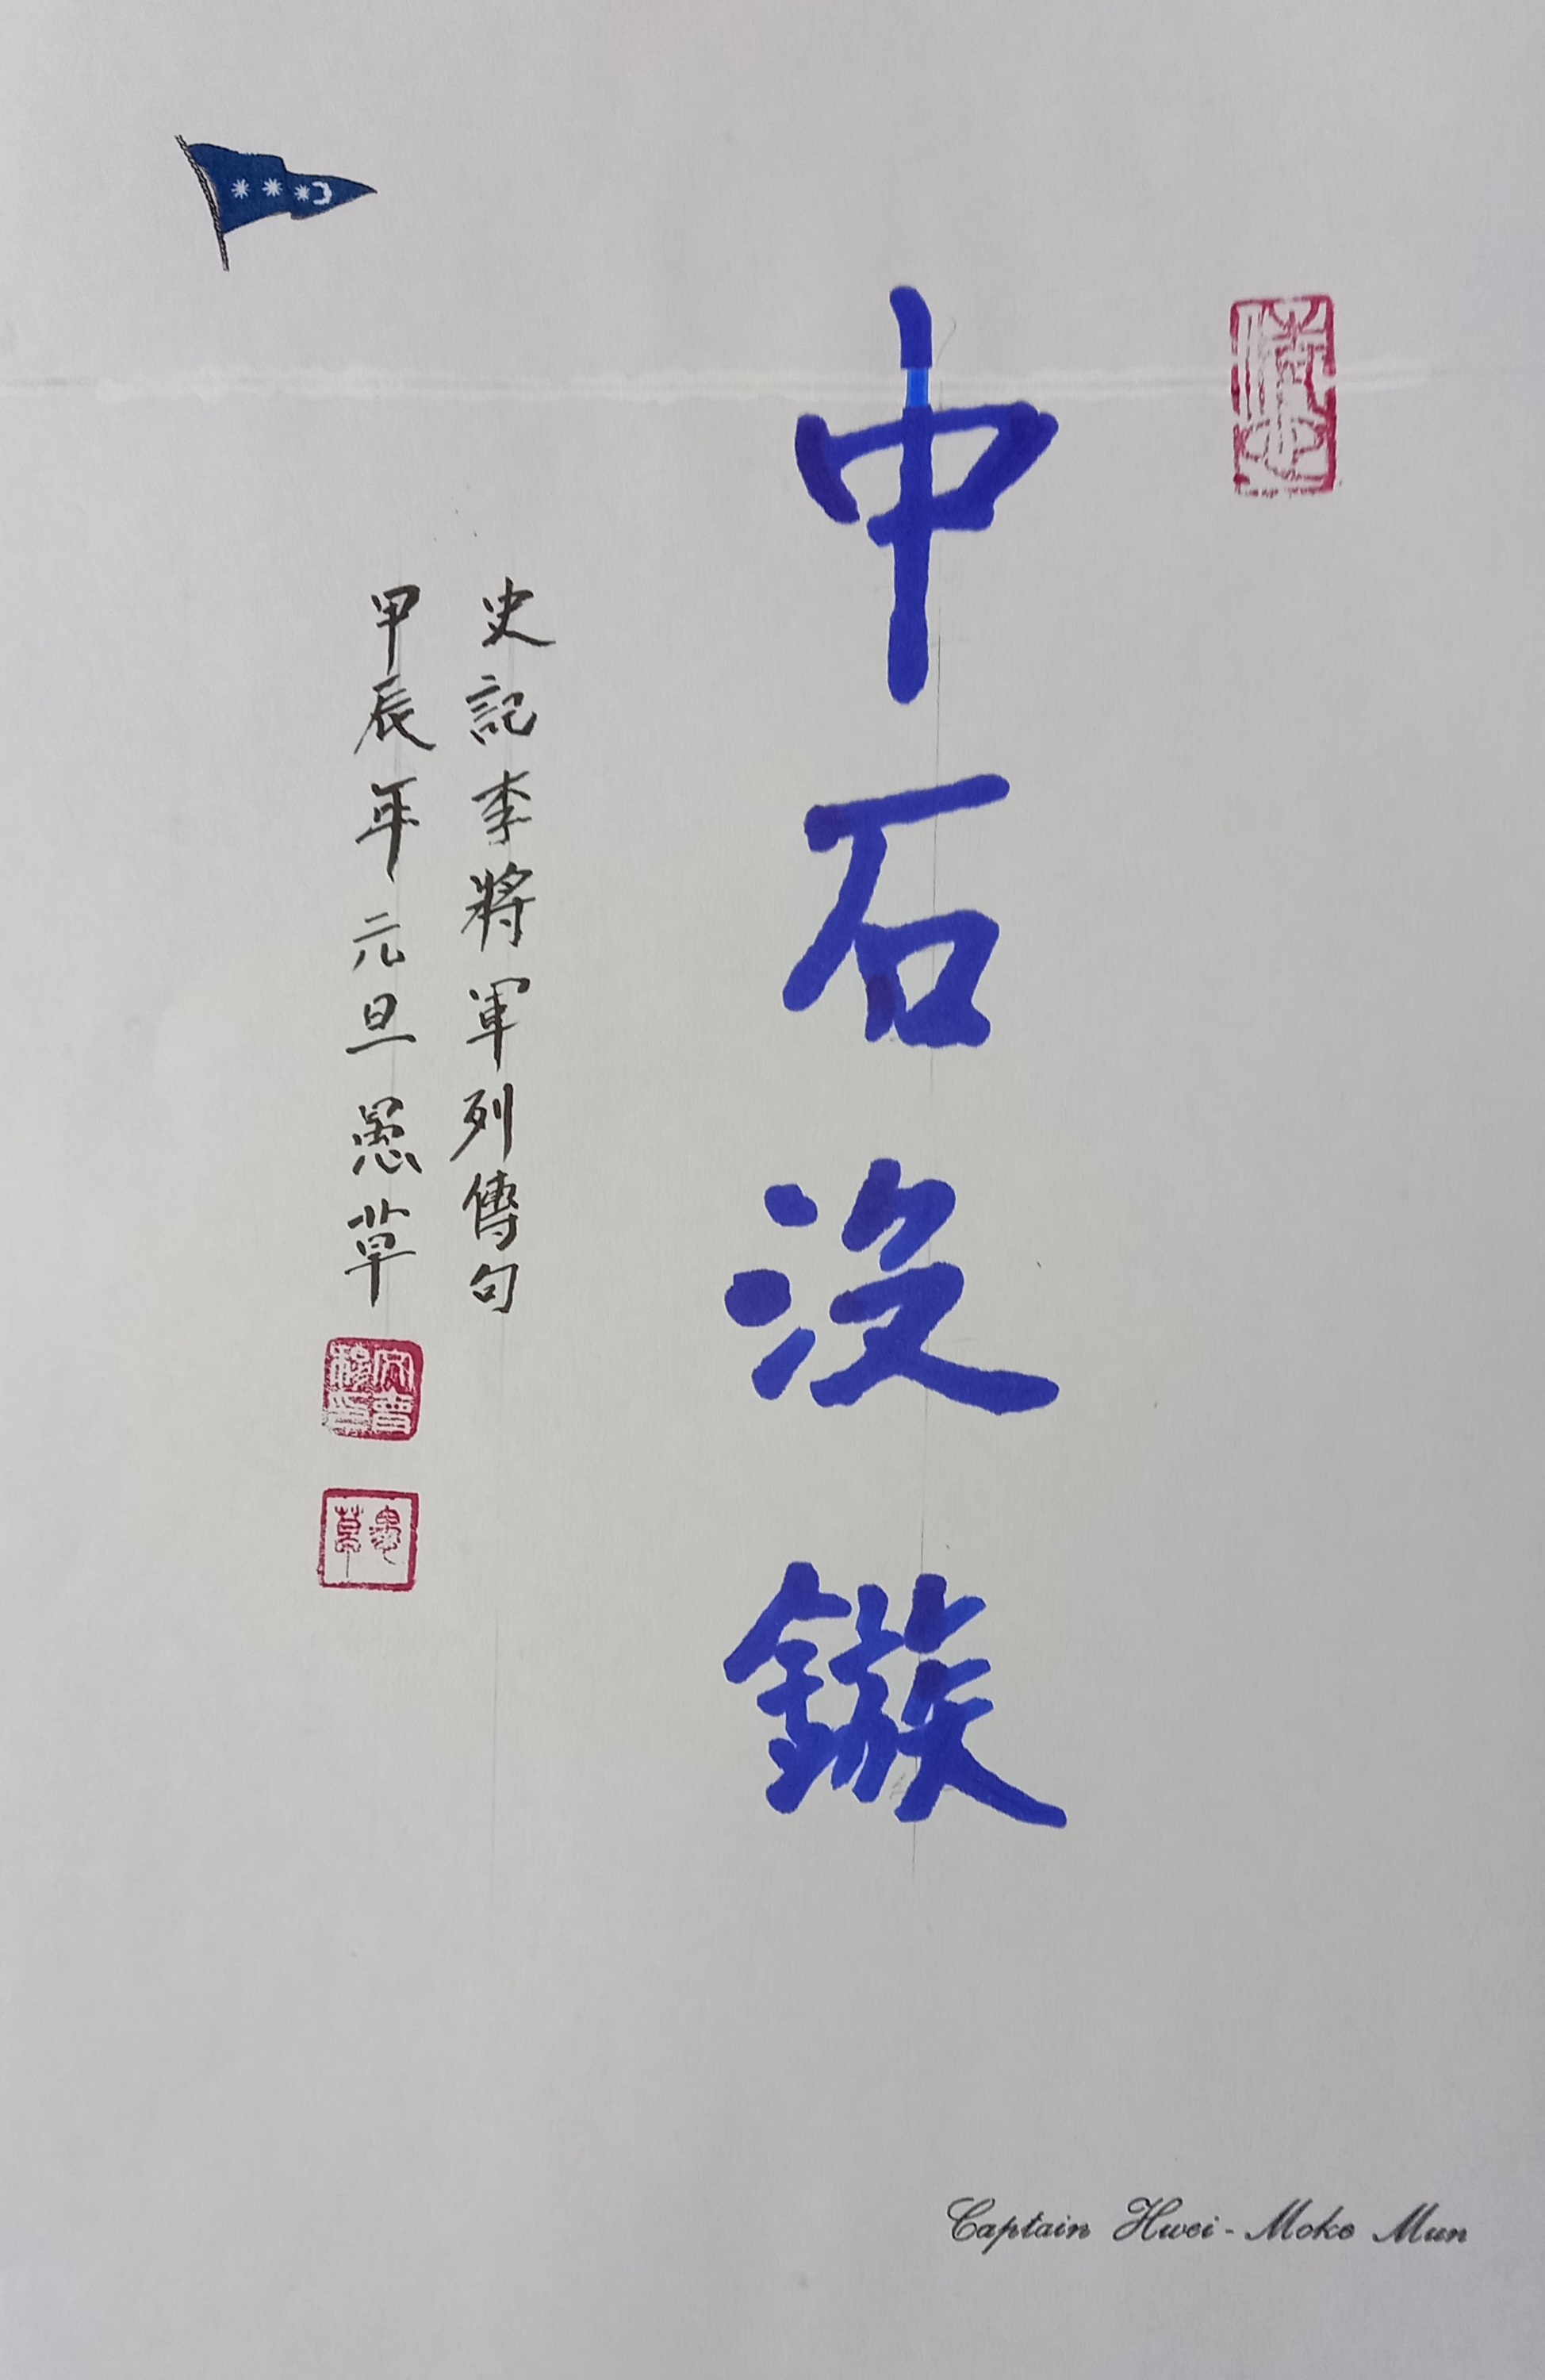 中石没鏃
史記李將軍列傳句
甲辰年元旦愚草
愚草
Captain Hwei-Moke Mun